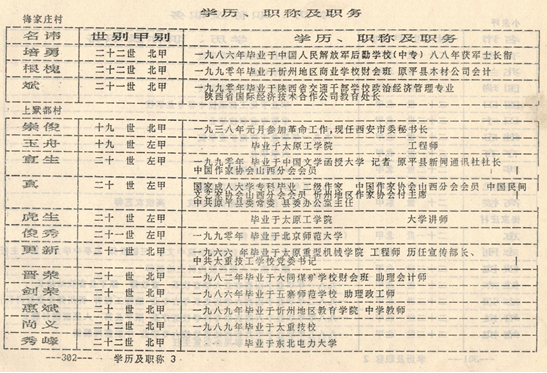 学历、职称及职务
梅家庄村
名讳 世别甲别 学历、职称及职务
培勇 二十二世 北甲 一九八六年毕业于中国人民解放军后勤学校(中专) 八八年获军士长衔
根槐 二十二世 北甲 一九九零年毕业于忻州地区商业学校财会班 原平县木材公司会计
斌 二十一世 北甲 一九九零年毕业于陕西省交通干部学校政治经济管理专业
陕西省国际经济技术合作公司教育处长
上默都村
崇俊 十九世 北甲 一九三八年元月参加革命工作,现任西安市委秘书长
玉舟 十九世 左甲 毕业于太原工学院 工程师
直生 二十世 左甲 一九九零年 毕业于中国文学函授大学 记者 原平县新闻通讯社社长
中国作家协会山西分会会员
真 二十世 左甲 国家成人大学专科毕业 二级作家 中国作家协会山西分会会员 中国民间
文艺家协会山西分会会员 忻州地区作家协会付主席
中共原平县委常委 县委办公室主任
虎生 二十世 左甲 毕业于太原工学院 大学讲师
俊秀 二十一世 左甲 一九九零年 毕业于北京师范大学
更新 二十一世 北甲 一九六六年 毕业于太原重型机械学院 工程师 历任宣传部长、
中共太重技工学校党委书记
晋荣 二十二世 北甲 一九八二年毕业于大同煤矿学校财会班 助理会计师
剑荣 二十二世 北甲 一九八六年毕业于五寨师范学校 助理政工师
惠斌 二十二世 北甲 一九八九年毕业于忻州地区教育学院 中学教师
尚义 二十二世 北甲 一九八九年毕业于太重技校
秀峰 二十二世 北甲 毕业于东北电力大学
---302--- 学历及职称 3